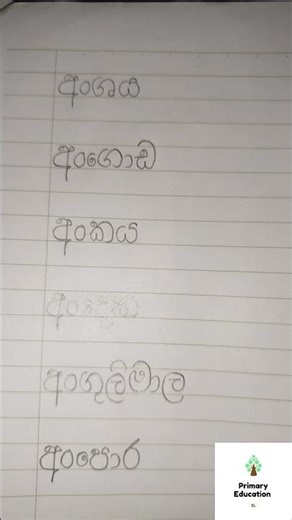 අංශය
අංගොඩ
අංකය
අංගුලිමාල
අංපොර
Primary
Education
SL